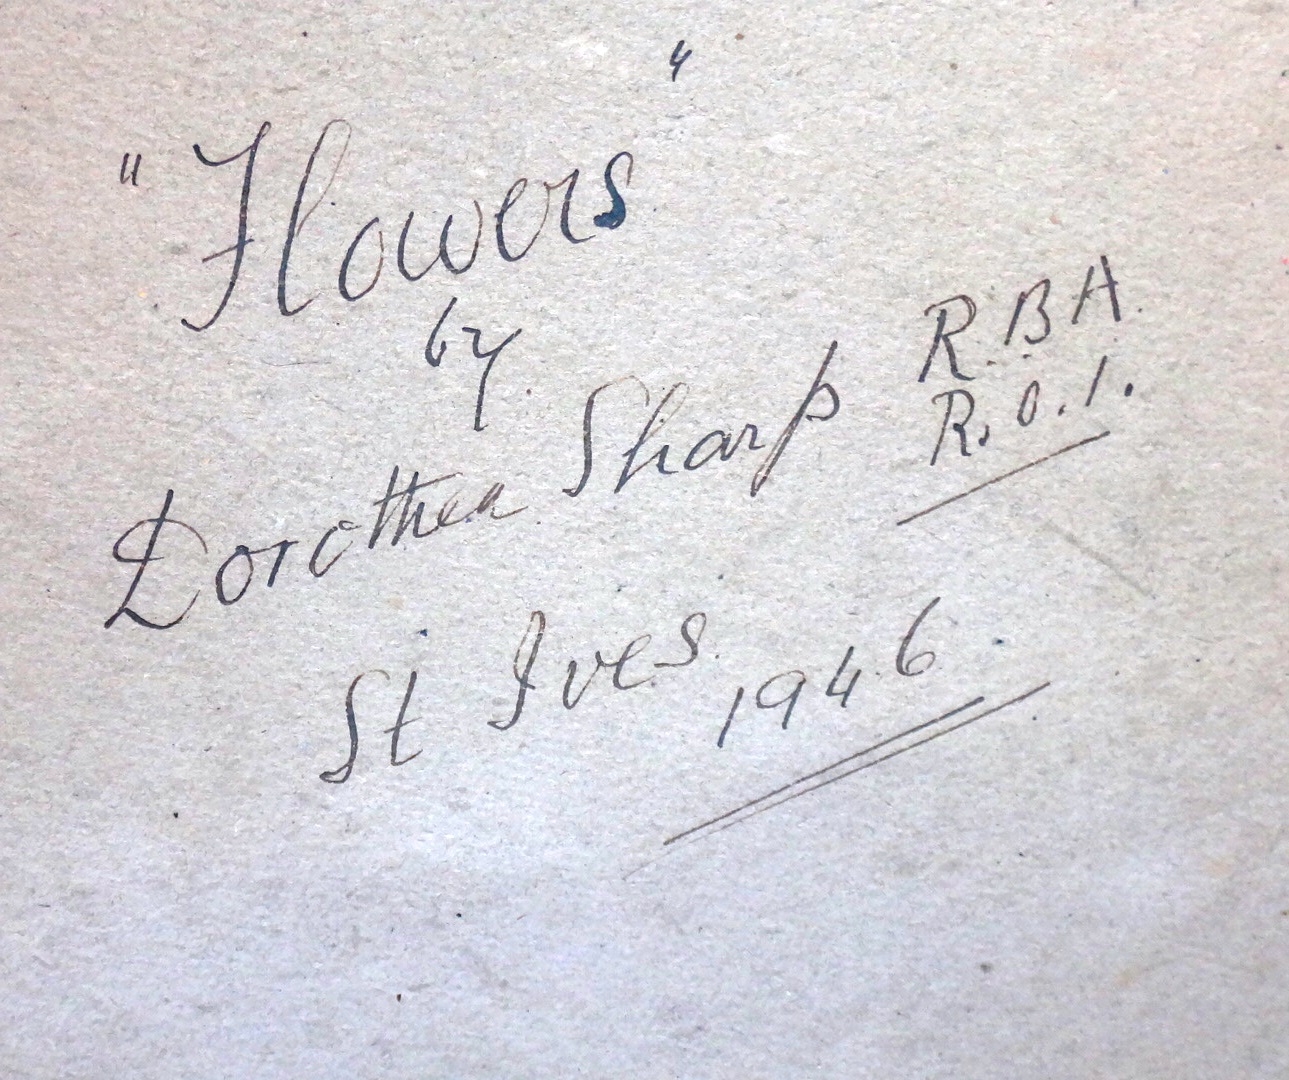 "Flowers"
by
Dorothea Sharp R.B.A.
R.O.I.
St Ives 1946.